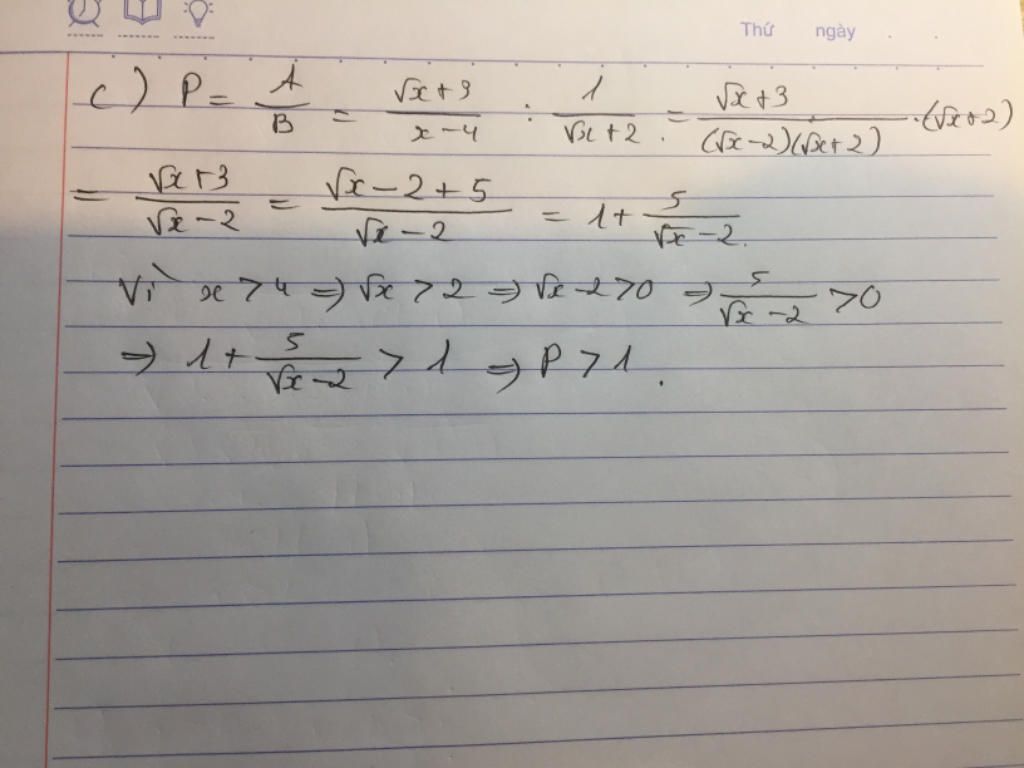 Thứ ngày . .
c) P = A/B = (√x + 3)/(x - 4) : 1/(√x + 2) = (√x + 3)/((√x - 2)(√x + 2)) . (√x + 2)
= (√x + 3)/(√x - 2) = (√x - 2 + 5)/(√x - 2) = 1 + 5/(√x - 2).
Vì x > 4 ⇒ √x > 2 ⇒ √x - 2 > 0 ⇒ 5/(√x - 2) > 0
⇒ 1 + 5/(√x - 2) > 1 ⇒ P > 1.